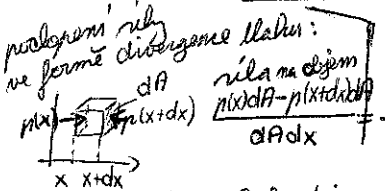 síly
ve formě divergence tlaku:
dA
p(x) p(x+dx)
x x+dx
síla na objem
p(x)dA-p(x+dx)dA
dAdx
=